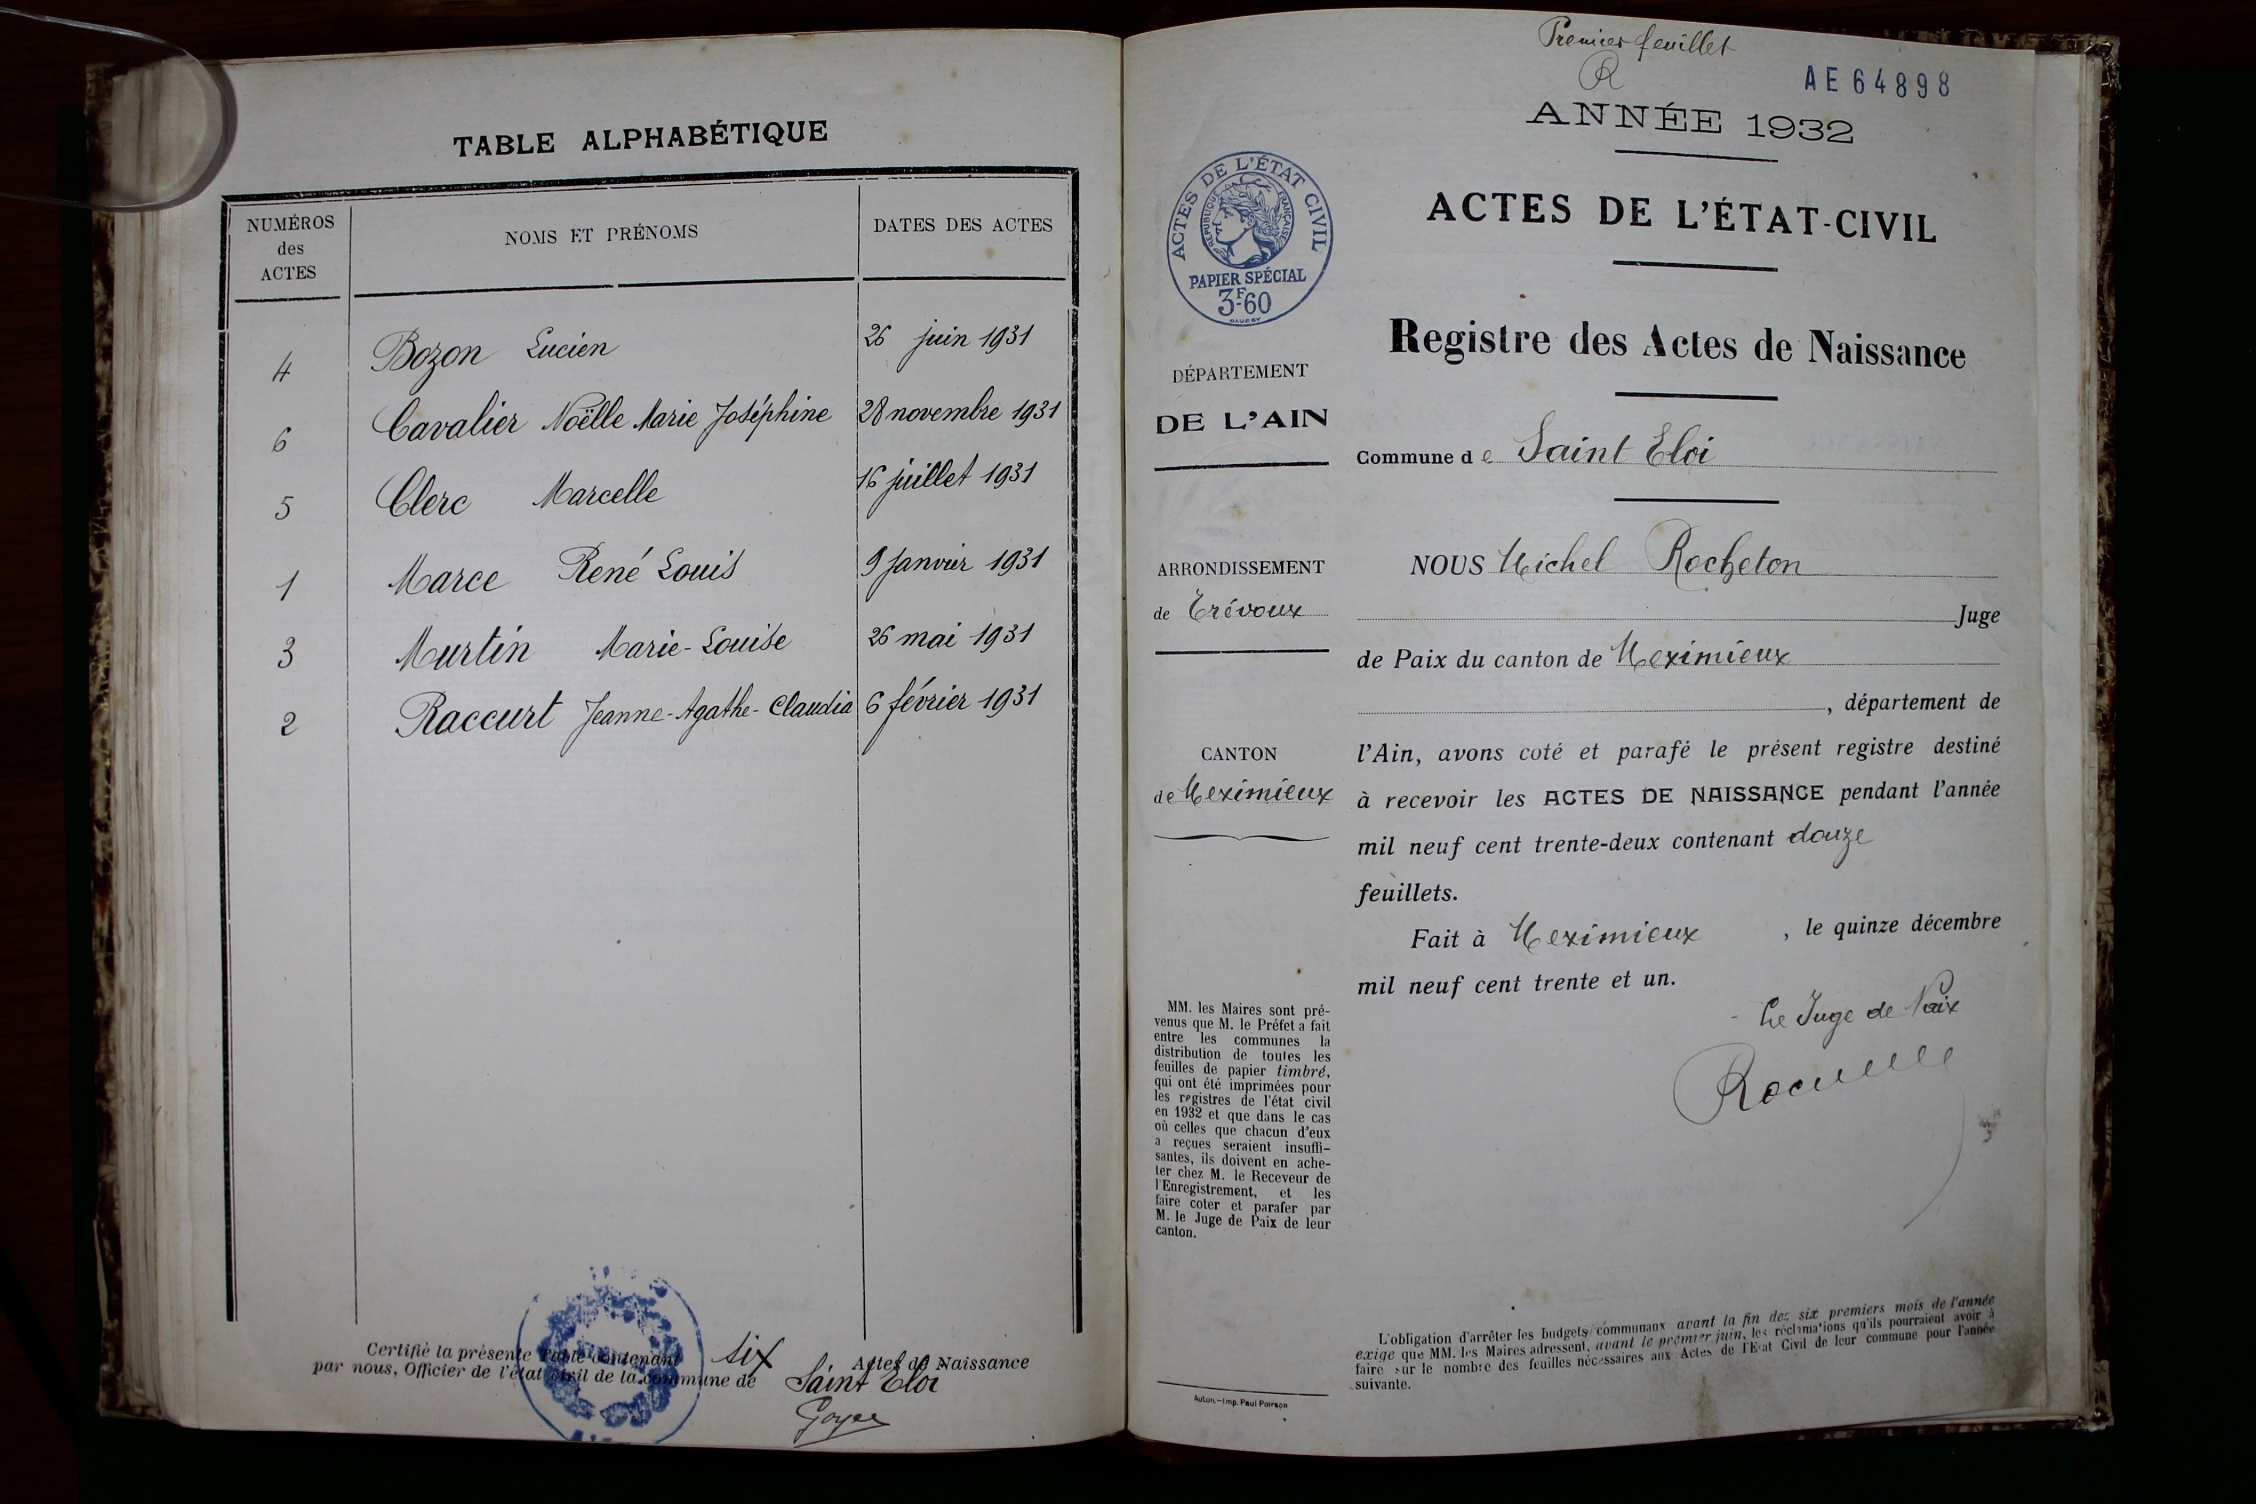 TABLE ALPHABÉTIQUE
NUMÉROS
des
ACTES
NOMS ET PRÉNOMS
DATES DES ACTES
4 Bozon Lucien 26 juin 1931
6 Cavalier Noëlle Marie Joséphine 28 novembre 1931
5 Clerc Marcelle 16 juillet 1931
1 Marce René Louis 9 Janvier 1931
3 Murtin Marie-Louise 26 mai 1931
2 Raccurt Jeanne-Agathe-Claudia 6 février 1931
Certifié la présente Table contenant six Actes de Naissance
par nous, Officier de l'état civil de la commune de Saint Eloi
Premier feuillet
R
AE64898
ANNÉE 1932
ACTES DE L'ÉTAT CIVIL
RÉPUBLIQUE FRANÇAISE
PAPIER SPÉCIAL
3F-60
ACTES DE L'ÉTAT-CIVIL
Registre des Actes de Naissance
DÉPARTEMENT
DE L'AIN
ARRONDISSEMENT
de Trévoux
CANTON
de Meximieux
MM. les Maires sont pré-
venus que M. le Préfet a fait
entre les communes la
distribution de toutes les
feuilles de papier timbré,
qui ont été imprimées pour
les registres de l'état civil
en 1932 et que dans le cas
où celles que chacun d'eux
a reçues seraient insuffi-
santes, ils doivent en ache-
ter chez M. le Receveur de
l'Enregistrement, et les
faire coter et parafer par
M. le Juge de Paix de leur
canton.
Autun.-Imp. Paul Poirson
Commune de Saint Eloi
NOUS Michel Rocheton
Juge
de Paix du canton de Meximieux
, département de
l'Ain, avons coté et parafé le présent registre destiné
à recevoir les ACTES DE NAISSANCE pendant l'année
mil neuf cent trente-deux contenant douze
feuillets.
Fait à Meximieux , le quinze décembre
mil neuf cent trente et un.
Le Juge de Paix
L'obligation d'arrêter les budgets communaux avant la fin des six premiers mois de l'année
exige que MM. les Maires adressent, avant le premier juin, les réclamations qu'ils pourraient avoir à
faire sur le nombre des feuilles nécessaires aux Actes de l'Etat Civil de leur commune pour l'année
suivante.